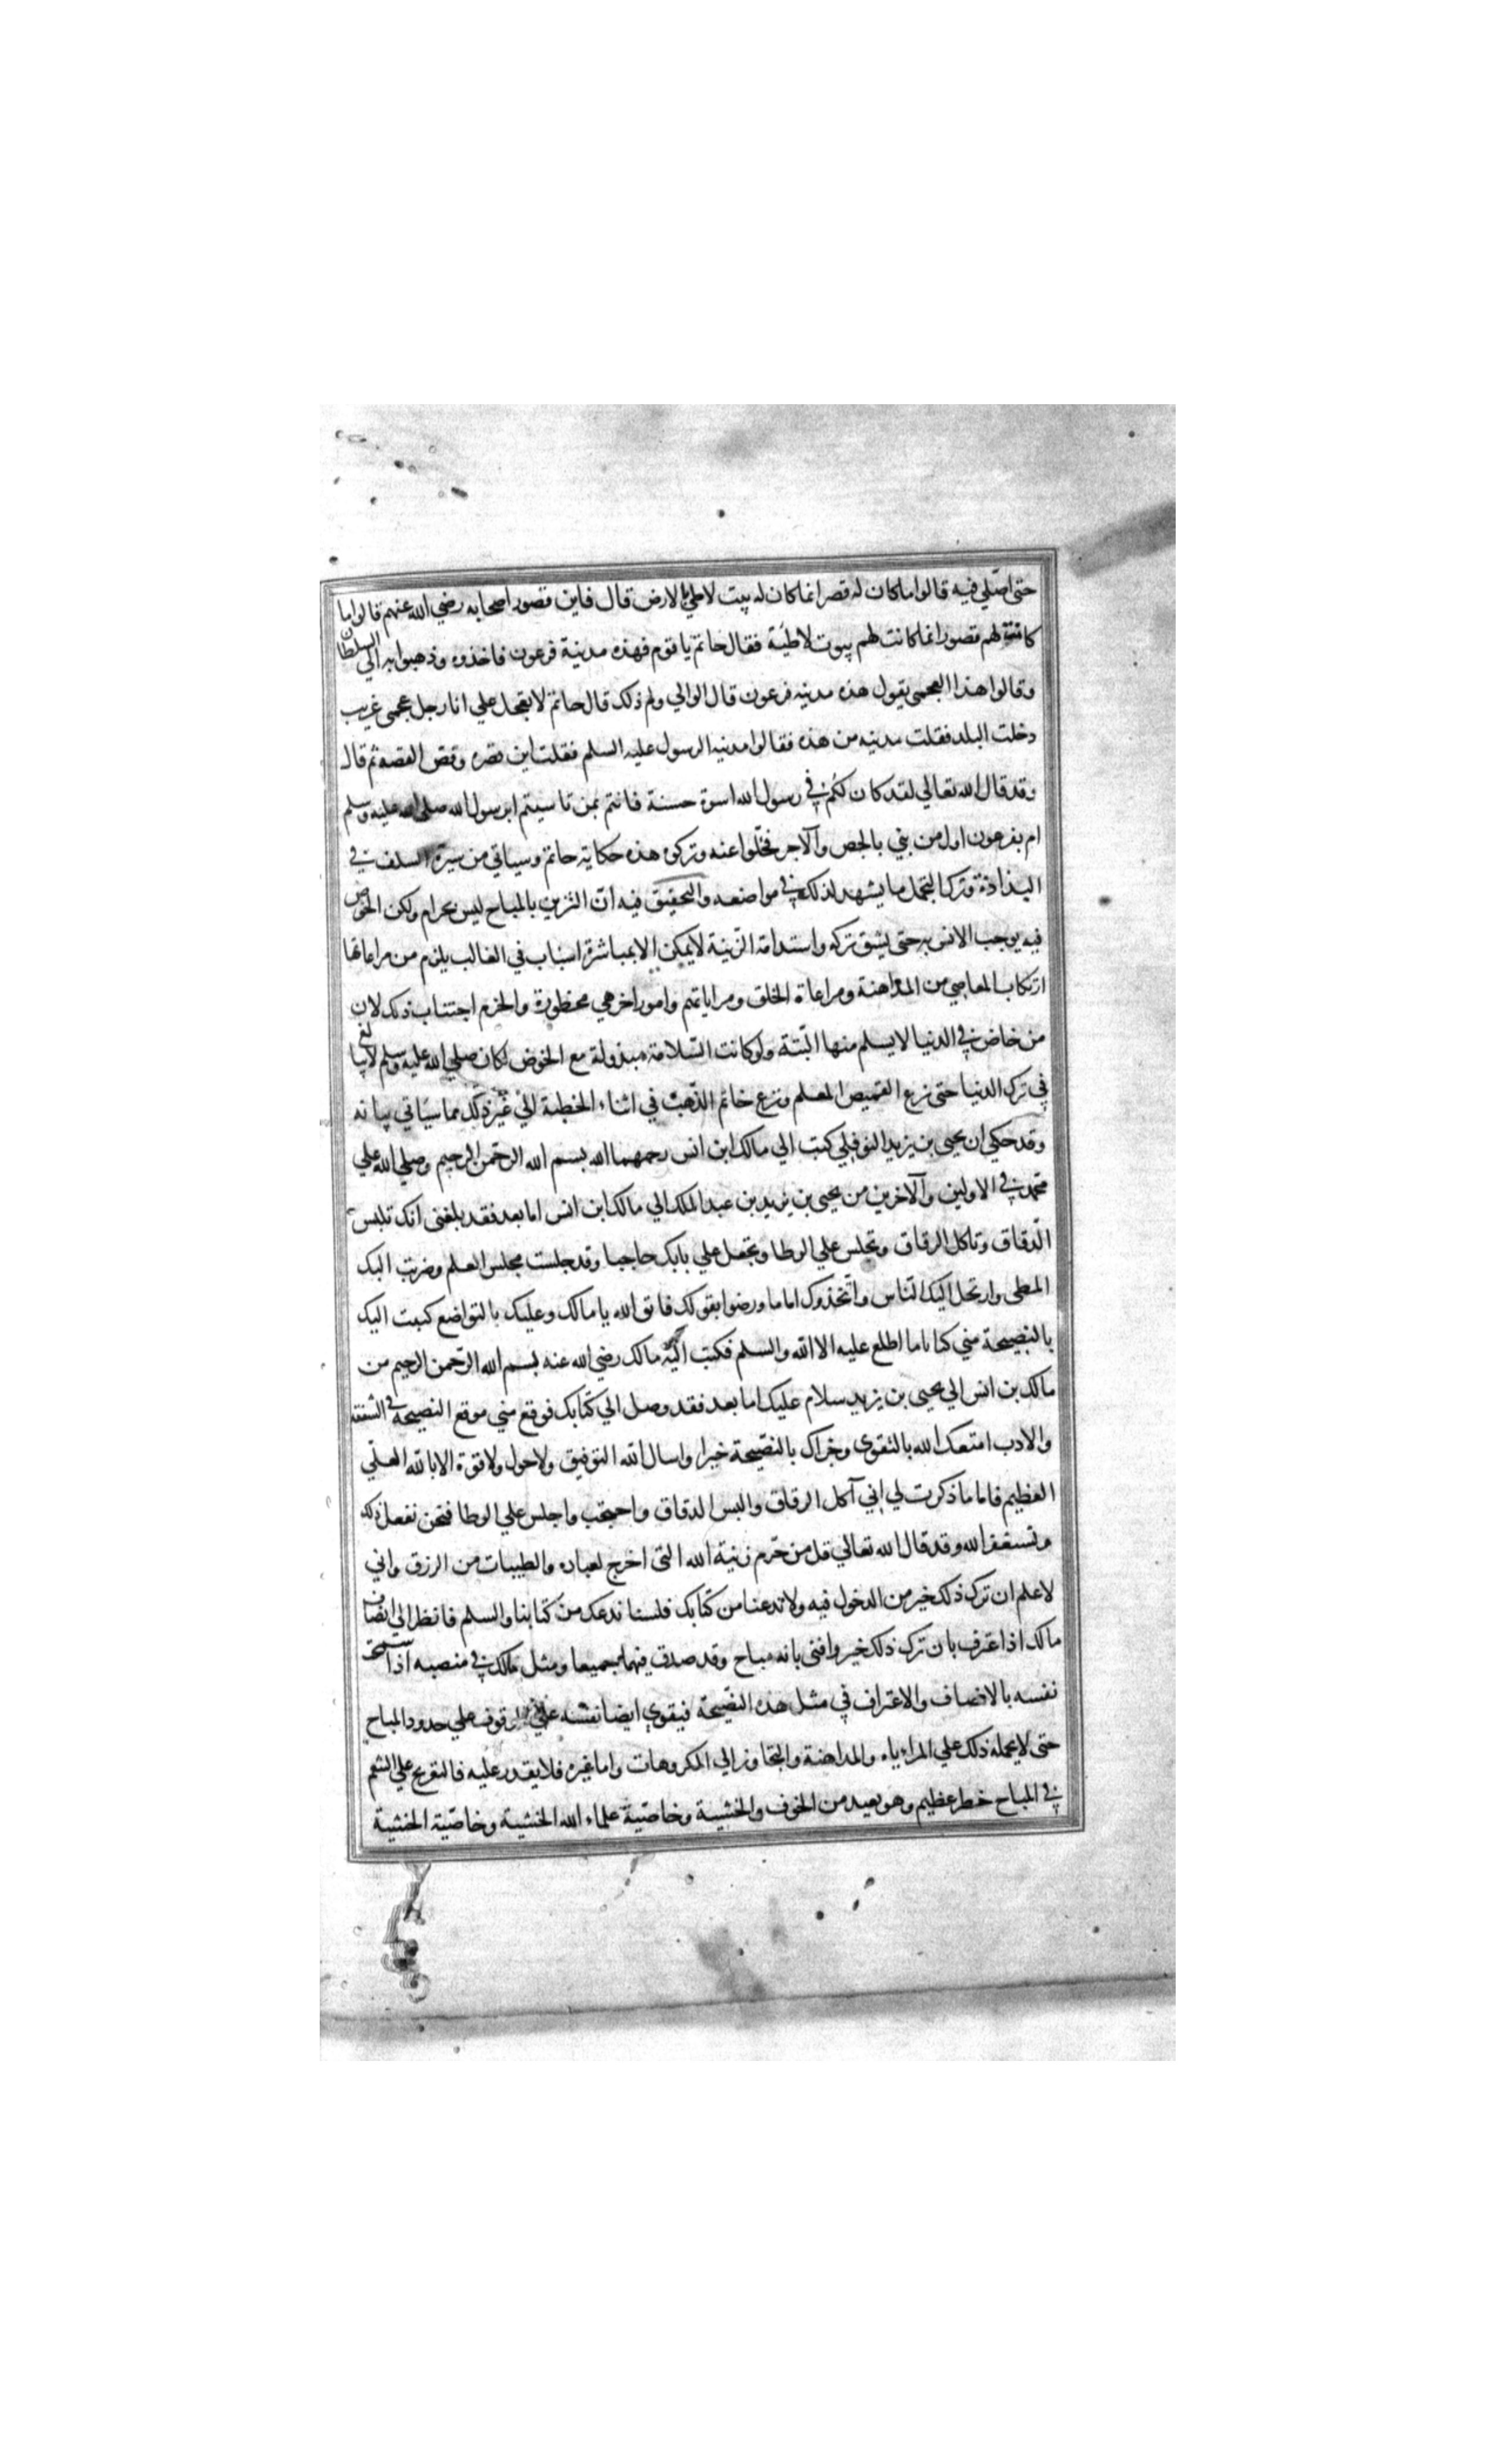 حتى اصلي فيه قالوا ما كان له قصر انما كان له بيت لاطي بالارض قال فاين قصور اصحابه رضي الله عنهم قالوا ما
كانت لهم قصور انما كانت لهم بيوت لاطئة فقال حاتم يا قوم فهذه مدينة فرعون فاخذوه وذهبوا به الي السلطان
وقالوا هذا العجمي يقول هذه مدينه فرعون قال الوالي ولم ذلك قال حاتم لا تعجل علي انا رجل عجمي غريب
دخلت البلد فقلت مدينه من هذه فقالوا مدنيه الرسول عليه السلم فقلت اين قصره وقص القصه ثم قال
وقد قال الله تعالي لقد كان لكم في رسول الله اسوة حسنة فانتم بمن تاسيتم ابرسول الله صلى الله عليه وسلم
ام بفرعون اول من بني بالجص والآجر فخلوا عنه وتركوه هذه حكاية حاتم وسياتي من سيرة السلف في
البذاذة وترك التجمل ما يشهد لذلك في مواضعه والتحقيق فيه ان التزين بالمباح ليس بحرام ولكن الخوض
فيه يوجب الانس به حتى يشق تركه واستدامة الزينة لا يمكن الا بمباشرة اسباب في الغالب يلزم من مراعاتها
ارتكاب المعاصي من المداهنة ومراعاة الخلق ومراياتهم وامور اخر هي محظورة والحزم اجتناب ذلك لان
من خاض في الدنيا لا يسلم منها البتة ولو كانت السلامة مبذولة مع الخوض لكان صلي الله عليه وسلم لا يبالغ
في ترك الدنيا حتى نزع القميص المعلم ونزع خاتم الذهب في اثناء الخطبة الي غير ذلك مما سياتي بيانه
وقد حكي ان يحيى بن يزيد النوفلي كتب الي مالك ابن انس رحمهما الله بسم الله الرحمن الرحيم وصلي الله علي
محمد في الاولين والآخرين من يحيى بن يزيد بن عبد الملك الي مالك ابن انس اما بعد فقد بلغنى انك تلبس
الدقاق وتاكل الرقاق وتجلس علي الوطا وتجعل علي بابك حاجبا وقد جلست مجلس العلم وضربت اليك
المطى وارتحل اليك الناس واتخذوك اماما ورضوا بقولك فاتق الله يا مالك وعليك بالتواضع كتبت اليك
بالنصيحة مني كتابا ما اطلع عليه الا الله والسلم فكتب اليه مالك رضي الله عنه بسم الله الرحمن الرحيم من
مالك بن انس الي يحيى بن يزيد سلام عليك اما بعد فقد وصل الي كتابك فوقع مني موقع النصيحة في الشفقة
والادب امتعك الله بالتقوى وجزاك بالنصيحة خيرا واسال الله التوفيق ولا حول ولا قوة الا بالله العلي
العظيم فاما ما ذكرت لي اني آكل الرقاق والبس الدقاق واحتجب واجلس علي الوطا فنحن نفعل ذلك
ونستغفر الله وقد قال الله تعالي قل من حرم زينة الله التى اخرج لعباده والطيبات من الرزق واني
لاعلم ان ترك ذلك خير من الدخول فيه ولا تدعنا من كتابك فلسنا ندعك من كتابنا والسلم فانظر الي انصاف
مالك اذا عترف بان ترك ذلك خير وافتى بانه مباح وقد صدق فيهما جميعا ومثل مالك في منصبه اذا سمحت
نفسه بالانصاف والاعتراف في مثل هذه النصيحة فيقوي ايضا نفسه علي الوقوف علي حدود المباح
حتى لا يحمله ذلك علي المراءياه والمداهنة والتجاوز الي المكروهات واما غيره فلا يقدر عليه فالتعريج علي التنعم
في المباح خطر عظيم وهو بعيد من الخوف والخشية وخاصية علماء الله الخشية وخاصية الخشية